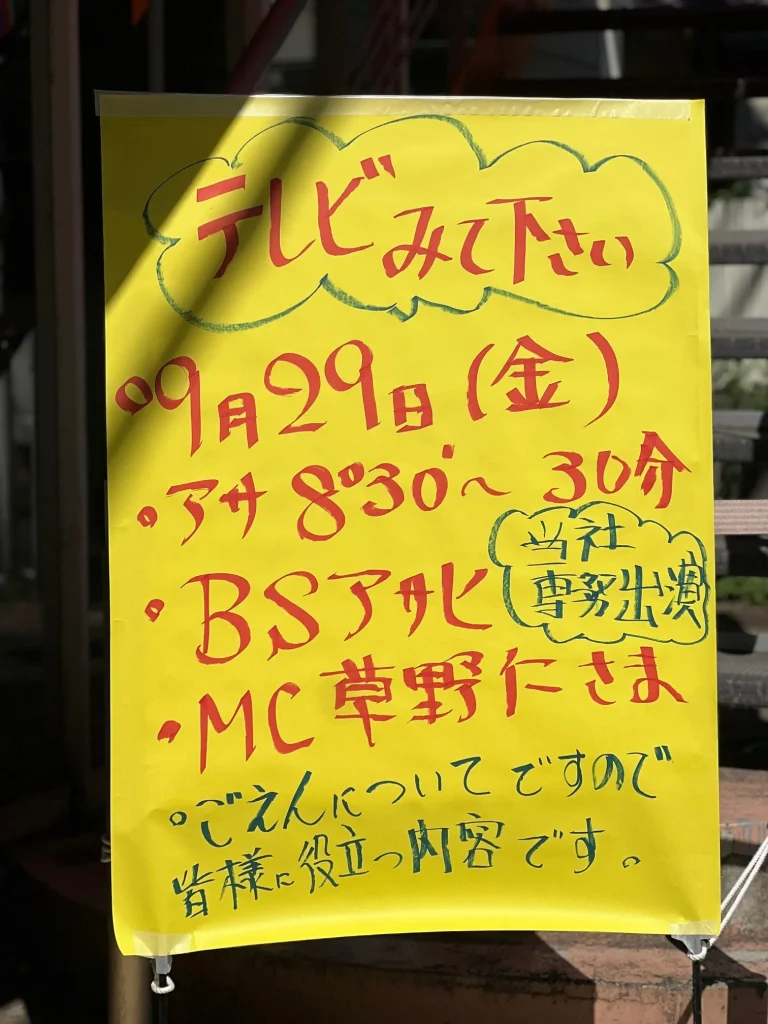 テレビみて下さい
°9月29日(金)
・アサ8°30'〜 30分
・BSアサヒ
当社
専務出演
・MC草野仁さま
°ごえんについてですので
皆様に役立つ内容です。